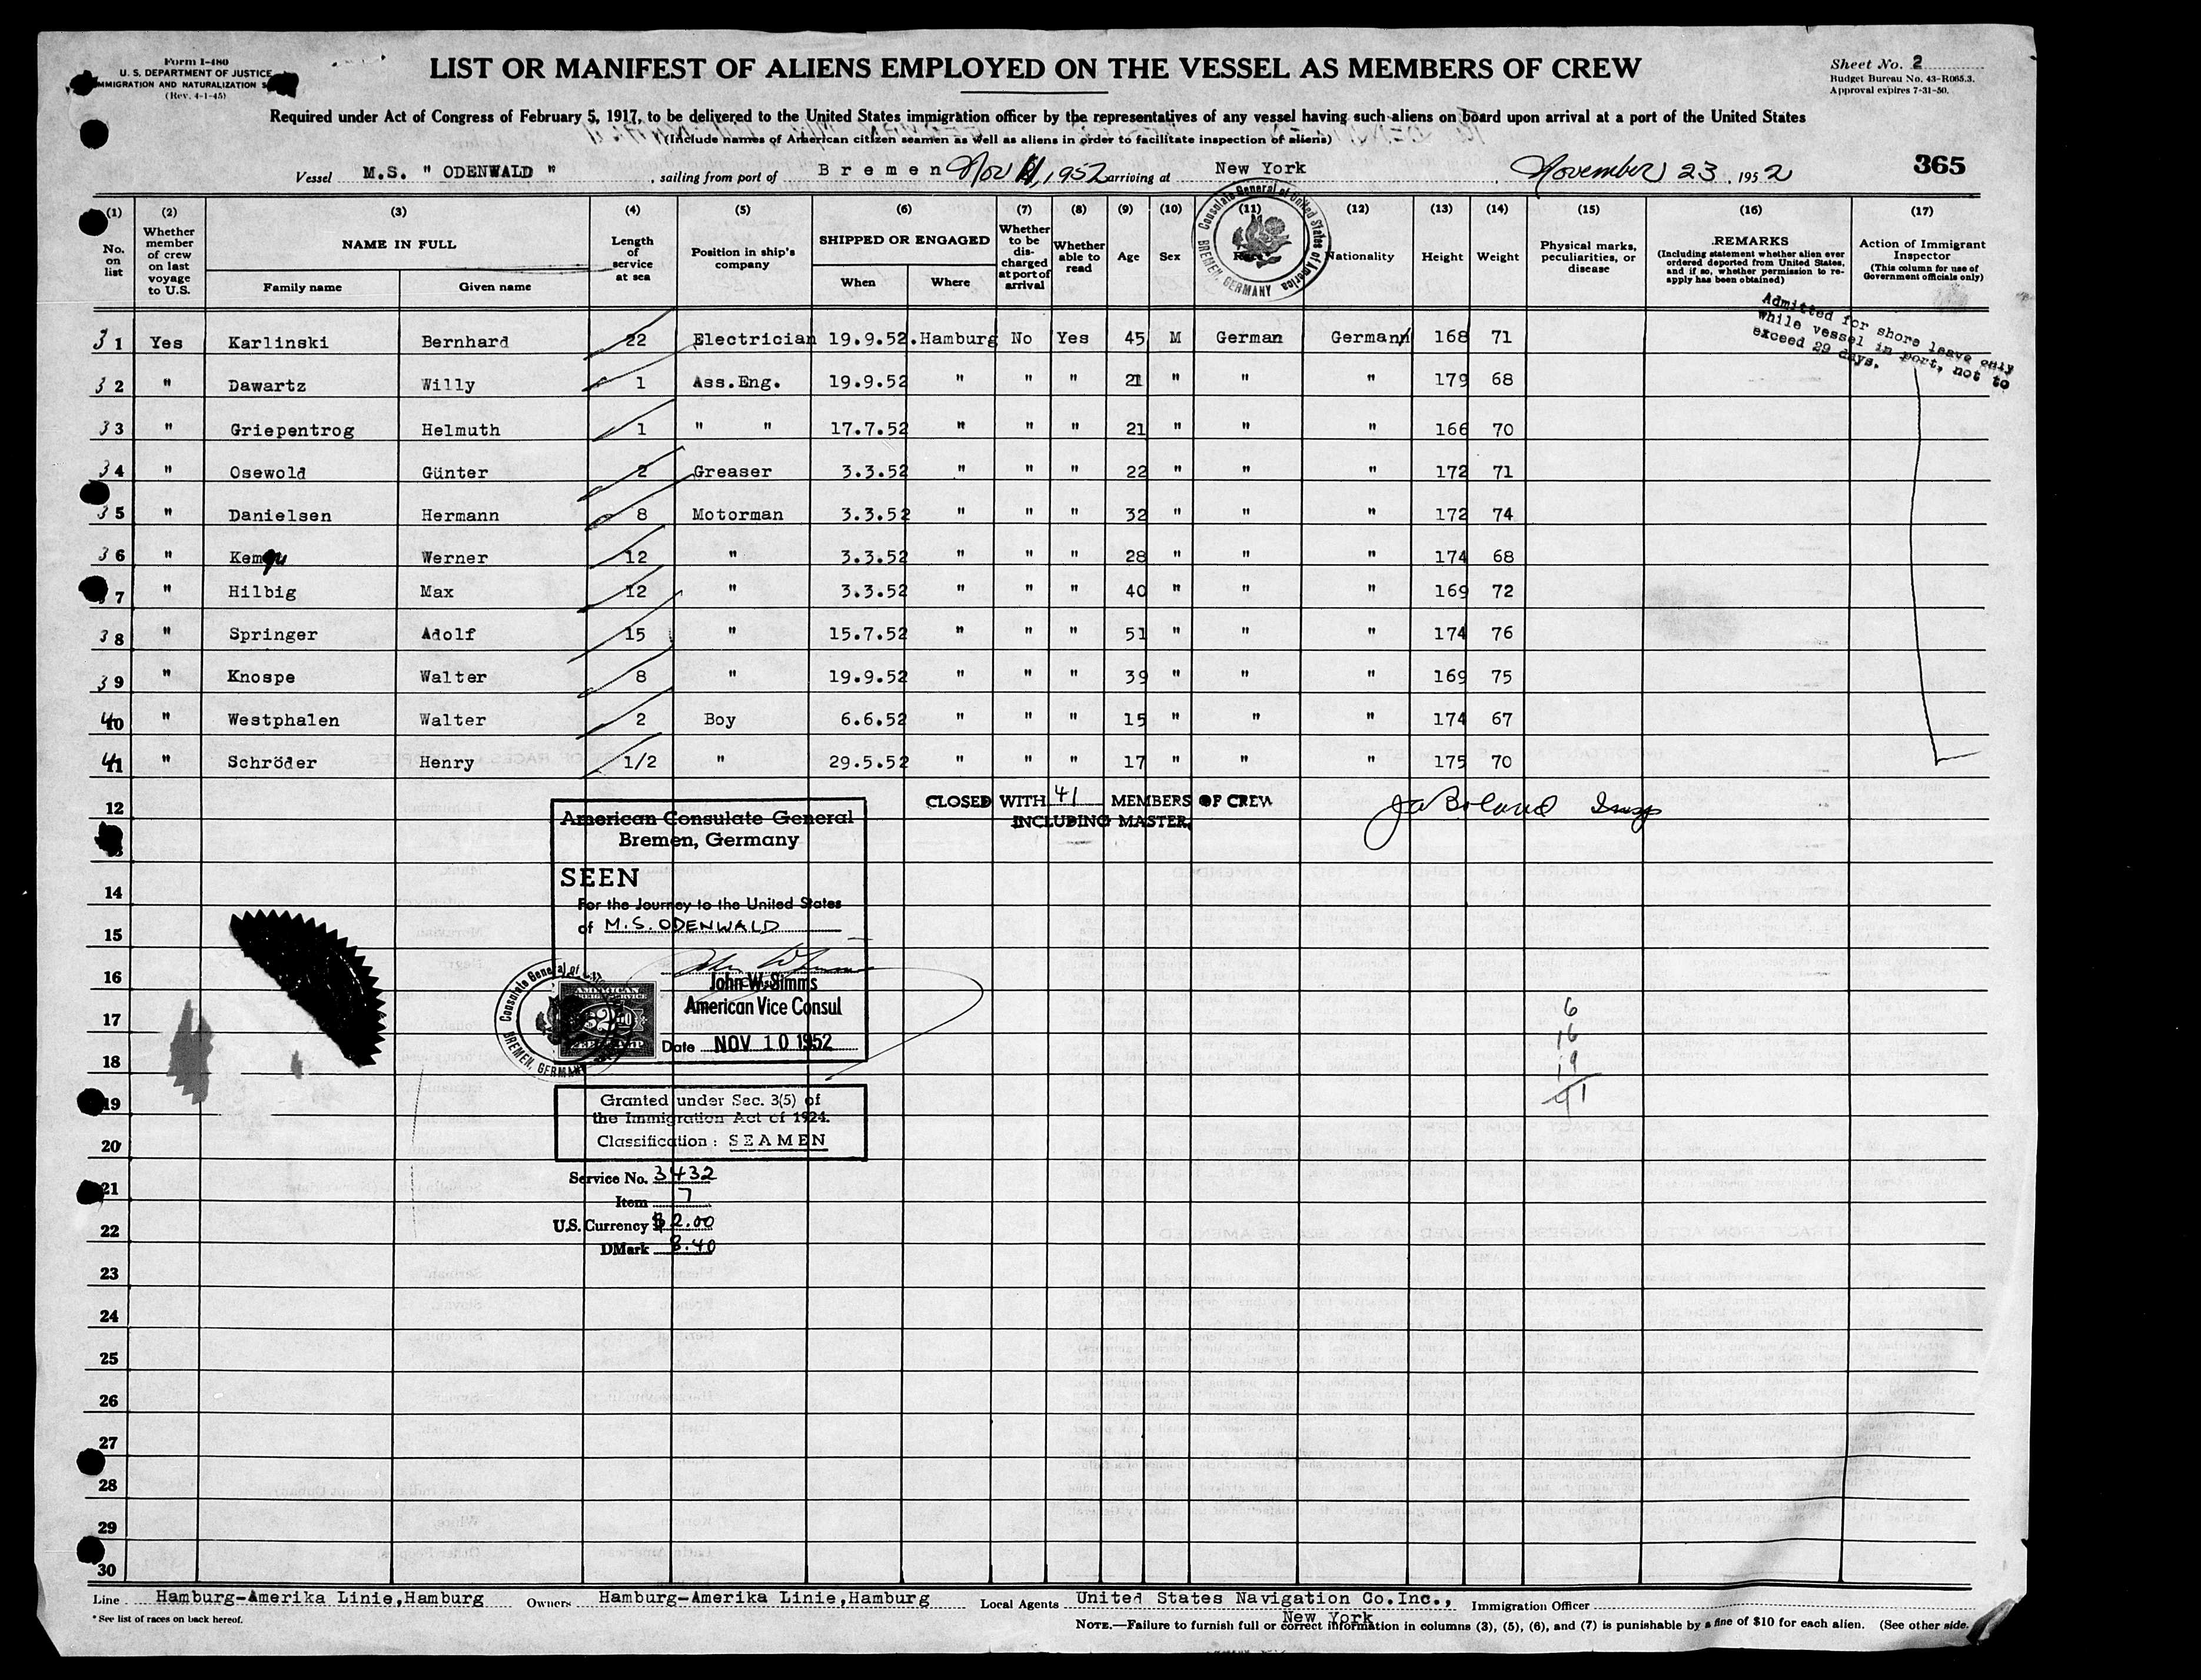 Form I-480
U. S. DEPARTMENT OF JUSTICE
IMMIGRATION AND NATURALIZATION
(Rev. 4-1-45)
LIST OR MANIFEST OF ALIENS EMPLOYED ON THE VESSEL AS MEMBERS OF CREW
Sheet No. 2
Budget Bureau No. 43-R065.3.
Approval expires 7-31-50.
Required under Act of Congress of February 5, 1917, to be delivered to the United States immigration officer by the representatives of any vessel having such aliens on board upon arrival at a port of the United States
(Include names of American citizen seamen as well as aliens in order to facilitate inspection of aliens)
Vessel M.S. " ODENWALD " , sailing from port of Bremen Nov 11, 1952 arriving at New York , November 23, 1952
365
Consulate General of United States of America BREMEN, GERMANY
(1) (2) (3) (4) (5) (6) (7) (8) (9) (10) (11) (12) (13) (14) (15) (16) (17)
No. on list Whether member of crew on last voyage to U.S. NAME IN FULL Family name Given name Length of service at sea Position in ship's company SHIPPED OR ENGAGED When Where Whether to be discharged at port of arrival Whether able to read Age Sex Race Nationality Height Weight Physical marks, peculiarities, or disease REMARKS (Including statement whether alien ever ordered deported from United States, and if so, whether permission to reapply has been obtained) Action of Immigrant Inspector (This column for use of Government officials only)
Admitted for shore leave only
while vessel in port, not to
exceed 29 days.
31 Yes Karlinski Bernhard 22 Electrician 19.9.52. Hamburg No Yes 45 M German German 168 71
32 " Dawartz Willy 1 Ass.Eng. 19.9.52 " " " 21 " " " 179 68
33 " Griepentrog Helmuth 1 " " 17.7.52 " " " 21 " " " 166 70
34 " Osewold Günter 2 Greaser 3.3.52 " " " 22 " " " 172 71
35 " Danielsen Hermann 8 Motorman 3.3.52 " " " 32 " " " 172 74
36 " Werner 12 " 3.3.52 " " " 28 " " " 174 68
37 " Hilbig Max 12 " 3.3.52 " " " 40 " " " 169 72
38 " Springer Adolf 15 " 15.7.52 " " " 51 " " " 174 76
39 " Knospe Walter 8 " 19.9.52 " " " 39 " " " 169 75
40 " Westphalen Walter 2 Boy 6.6.52 " " " 15 " " " 174 67
41 " Schröder Henry 1/2 " 29.5.52 " " " 17 " " " 175 70
12
CLOSED WITH 41 MEMBERS OF CREW
INCLUDING MASTER.
American Consulate General
Bremen, Germany
SEEN
For the Journey to the United States
of M.S. ODENWALD
John W. Simms
American Vice Consul
Date NOV 10 1952
Consulate General of BREMEN, GERMANY
AMERICAN
FOREIGN SERVICE
$2.00
FEE STAMP
14
15
16
17
18
19
20
21
22
23
24
25
26
27
28
29
30
6
16
19
41
Granted under Sec. 3(5) of
the Immigration Act of 1924.
Classification : SEAMEN
Service No. 3432
Item 7
U.S. Currency $2.00
DMark 8.40
Line Hamburg-Amerika Linie,Hamburg Owners Hamburg-Amerika Linie,Hamburg Local Agents United States Navigation Co.Inc., New York Immigration Officer
* See list of races on back hereof.
NOTE.—Failure to furnish full or correct information in columns (3), (5), (6), and (7) is punishable by a fine of $10 for each alien. (See other side.